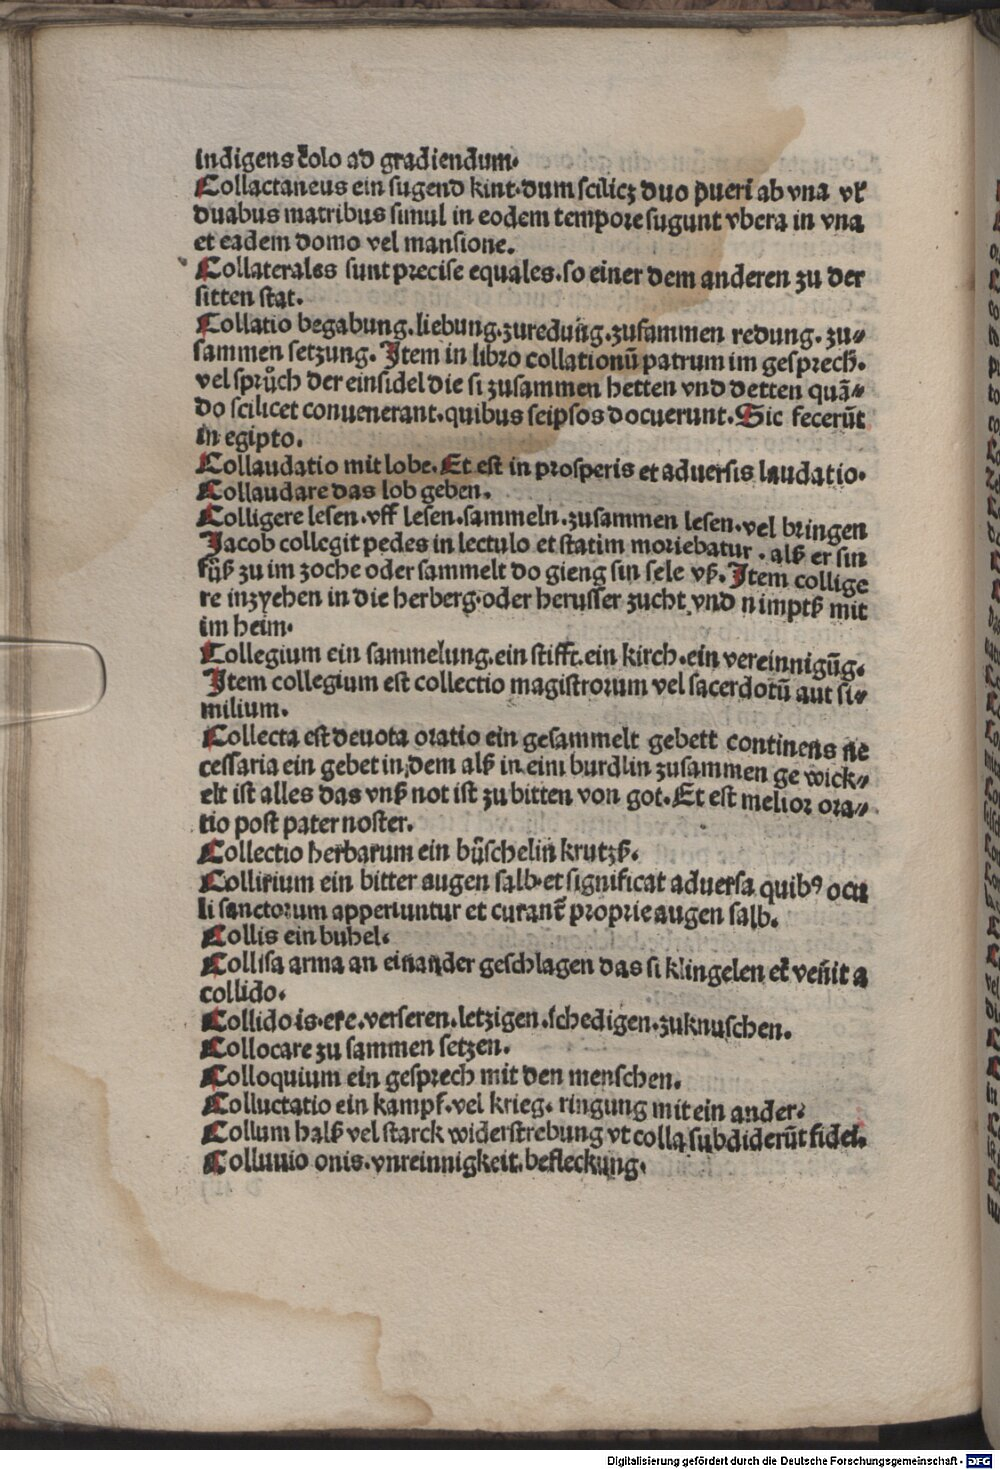 indigens colo ad gradiendum.
Collactaneus ein sugend kint. dum scilicz duo pueri ab vna vł
duabus matribus simul in eodem tempore sugunt vbera in vna
et eadem domo vel mansione.
Collaterales sunt precise equales. so einer dem anderen zu der
sitten stat.
Collatio begabung. liebung. zuredung. zusammen redung. zu⸗
sammen setzung. Item in libro collationū patrum im gesprech.
vel sprůch der einsidel die si zusammen hetten vnd detten quā⸗
do scilicet conuenerant. quibus seipsos docuerunt. Sic fecerūt
in egipto.
Collaudatio mit lobe. Et est in prosperis et aduersis laudatio.
Collaudare das lob geben.
Colligere lesen. vff lesen. sammeln. zusammen lesen. vel bringen
Jacob collegit pedes in lectulo et statim moriebatur. alß er sin
fůß zu im zoche oder sammelt do gieng sin sele vß. Item collige
re inzyehen in die herberg. oder herusser zucht vnd nimptß mit
im heim.
Collegium ein sammelung. ein stifft. ein kirch. ein vereinnigūg.
Item collegium est collectio magistrorum vel sacerdotū aut si⸗
milium.
Collecta est deuota oratio ein gesammelt gebett continens ne
cessaria ein gebet in dem alß in eim burdlin zusammen ge wick⸗
elt ist alles das vnß not ist zu bitten von got. Et est melior ora⸗
tio post pater noster.
Collectio herbarum ein bůschelin krutzß.
Collirium ein bitter augen salb. et significat aduersa quibꝰ ocu
li sanctorum apperiuntur et curant̄ proprie augen salb.
Collis ein buhel.
Collisa arma an einander geschlagen das si klingelen et veñit a
collido.
Collido is. ere. verseren. letzigen. schedigen. zuknuschen.
Collocare zu sammen setzen.
Colloquium ein gesprech mit den menschen.
Colluctatio ein kampf. vel krieg. ringung mit ein ander.
Collum halß vel starck widerstrebung vt colla subdiderūt fidei.
Colluuio onis. vnreinnigkeit. befleckung.
Digitalisierung gefördert durch die Deutsche Forschungsgemeinschaft - DFG